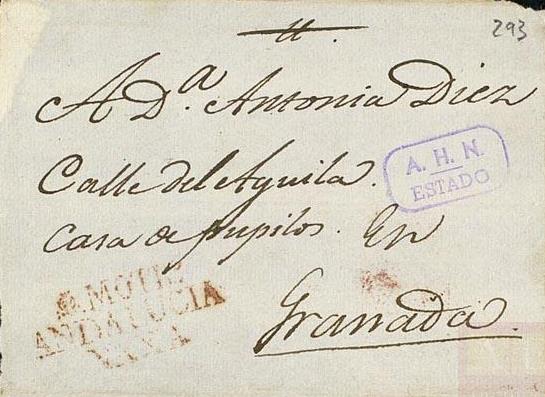 293
A D.ª Antonia Diez
Calle del Aguila.
Casa de pupilos. En
Granada.
A. H. N.
ESTADO
ANDALUCIA